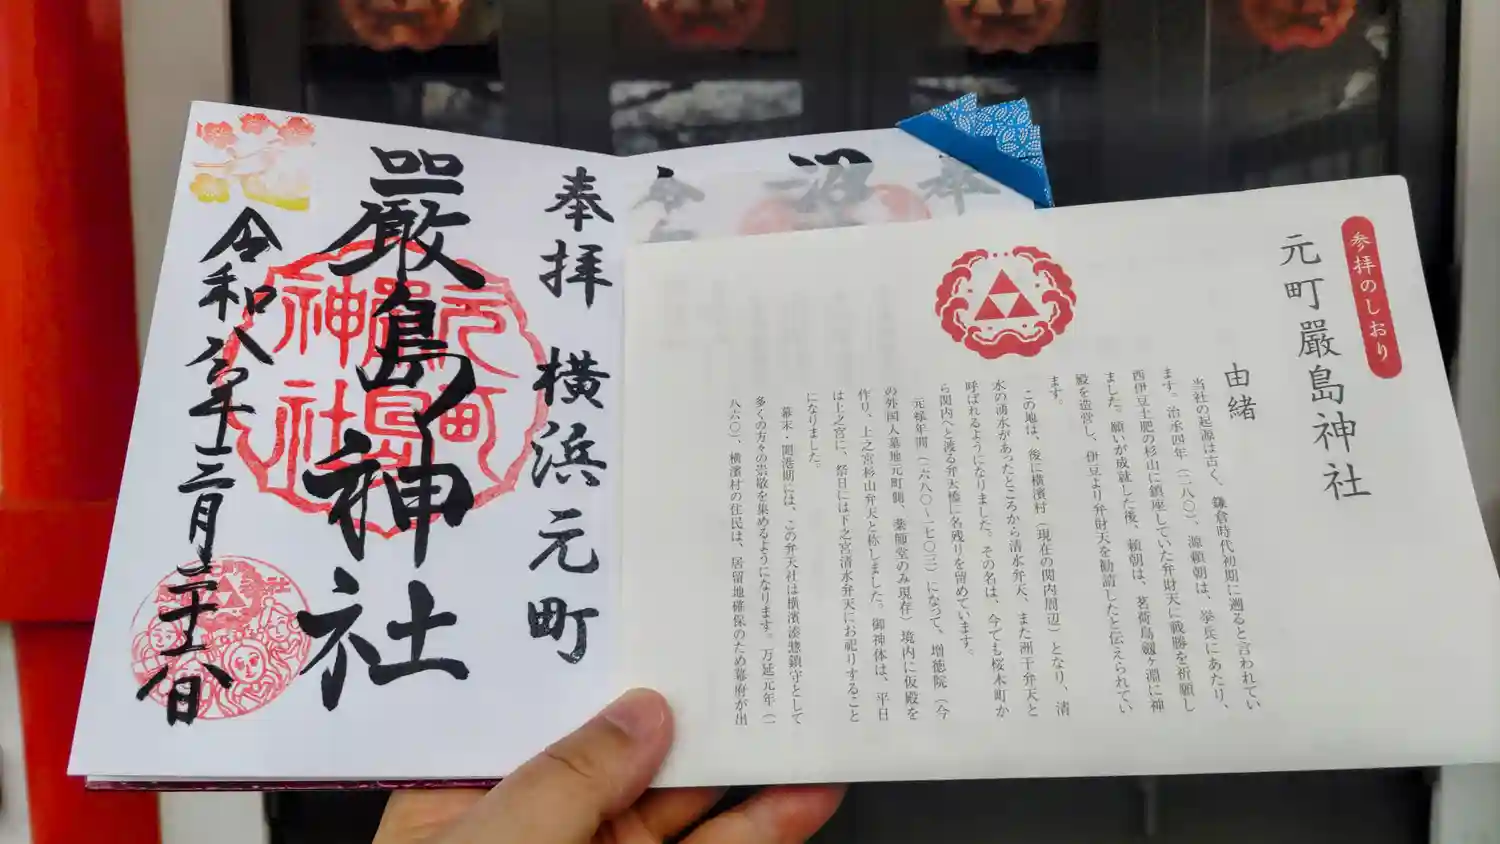 参拝のしおり
元町嚴島神社
由緒
当社の起源は古く、鎌倉時代初期に遡ると言われてい
ます。治承四年（一一八〇）、源頼朝は、挙兵にあたり、
西伊豆土肥の杉山に鎮座していた弁財天に戦勝を祈願し
ました。願いが成就した後、頼朝は、茗荷島ヶ淵に神
殿を造営し、伊豆より弁財天を勧請したと伝えられてい
ます。
この地は、後に横濱村（現在の関内周辺）となり、清
水の湧水があったところから清水弁天、また洲干弁天と
呼ばれるようになりました。その名は、今でも桜木町か
ら関内へと渡る弁天橋に名残りを留めています。
元禄年間（一六八〇～一七〇三）になって、増徳院（今
の外国人墓地元町側、薬師堂のみ現存）境内に仮殿を
作り、上之宮杉山弁天と称しました。御神体は、平日
は上之宮に、祭日には下之宮清水弁天にお祀りすること
になりました。
幕末・開港期には、この弁天社は横濱湊惣鎮守として
多くの方々の崇敬を集めるようになります。万延元年（一
八六〇）、横濱村の住民は、居留地確保のため幕府が出
奉拝 横浜元町
嚴島神社
元町
嚴島
神社
令和八年